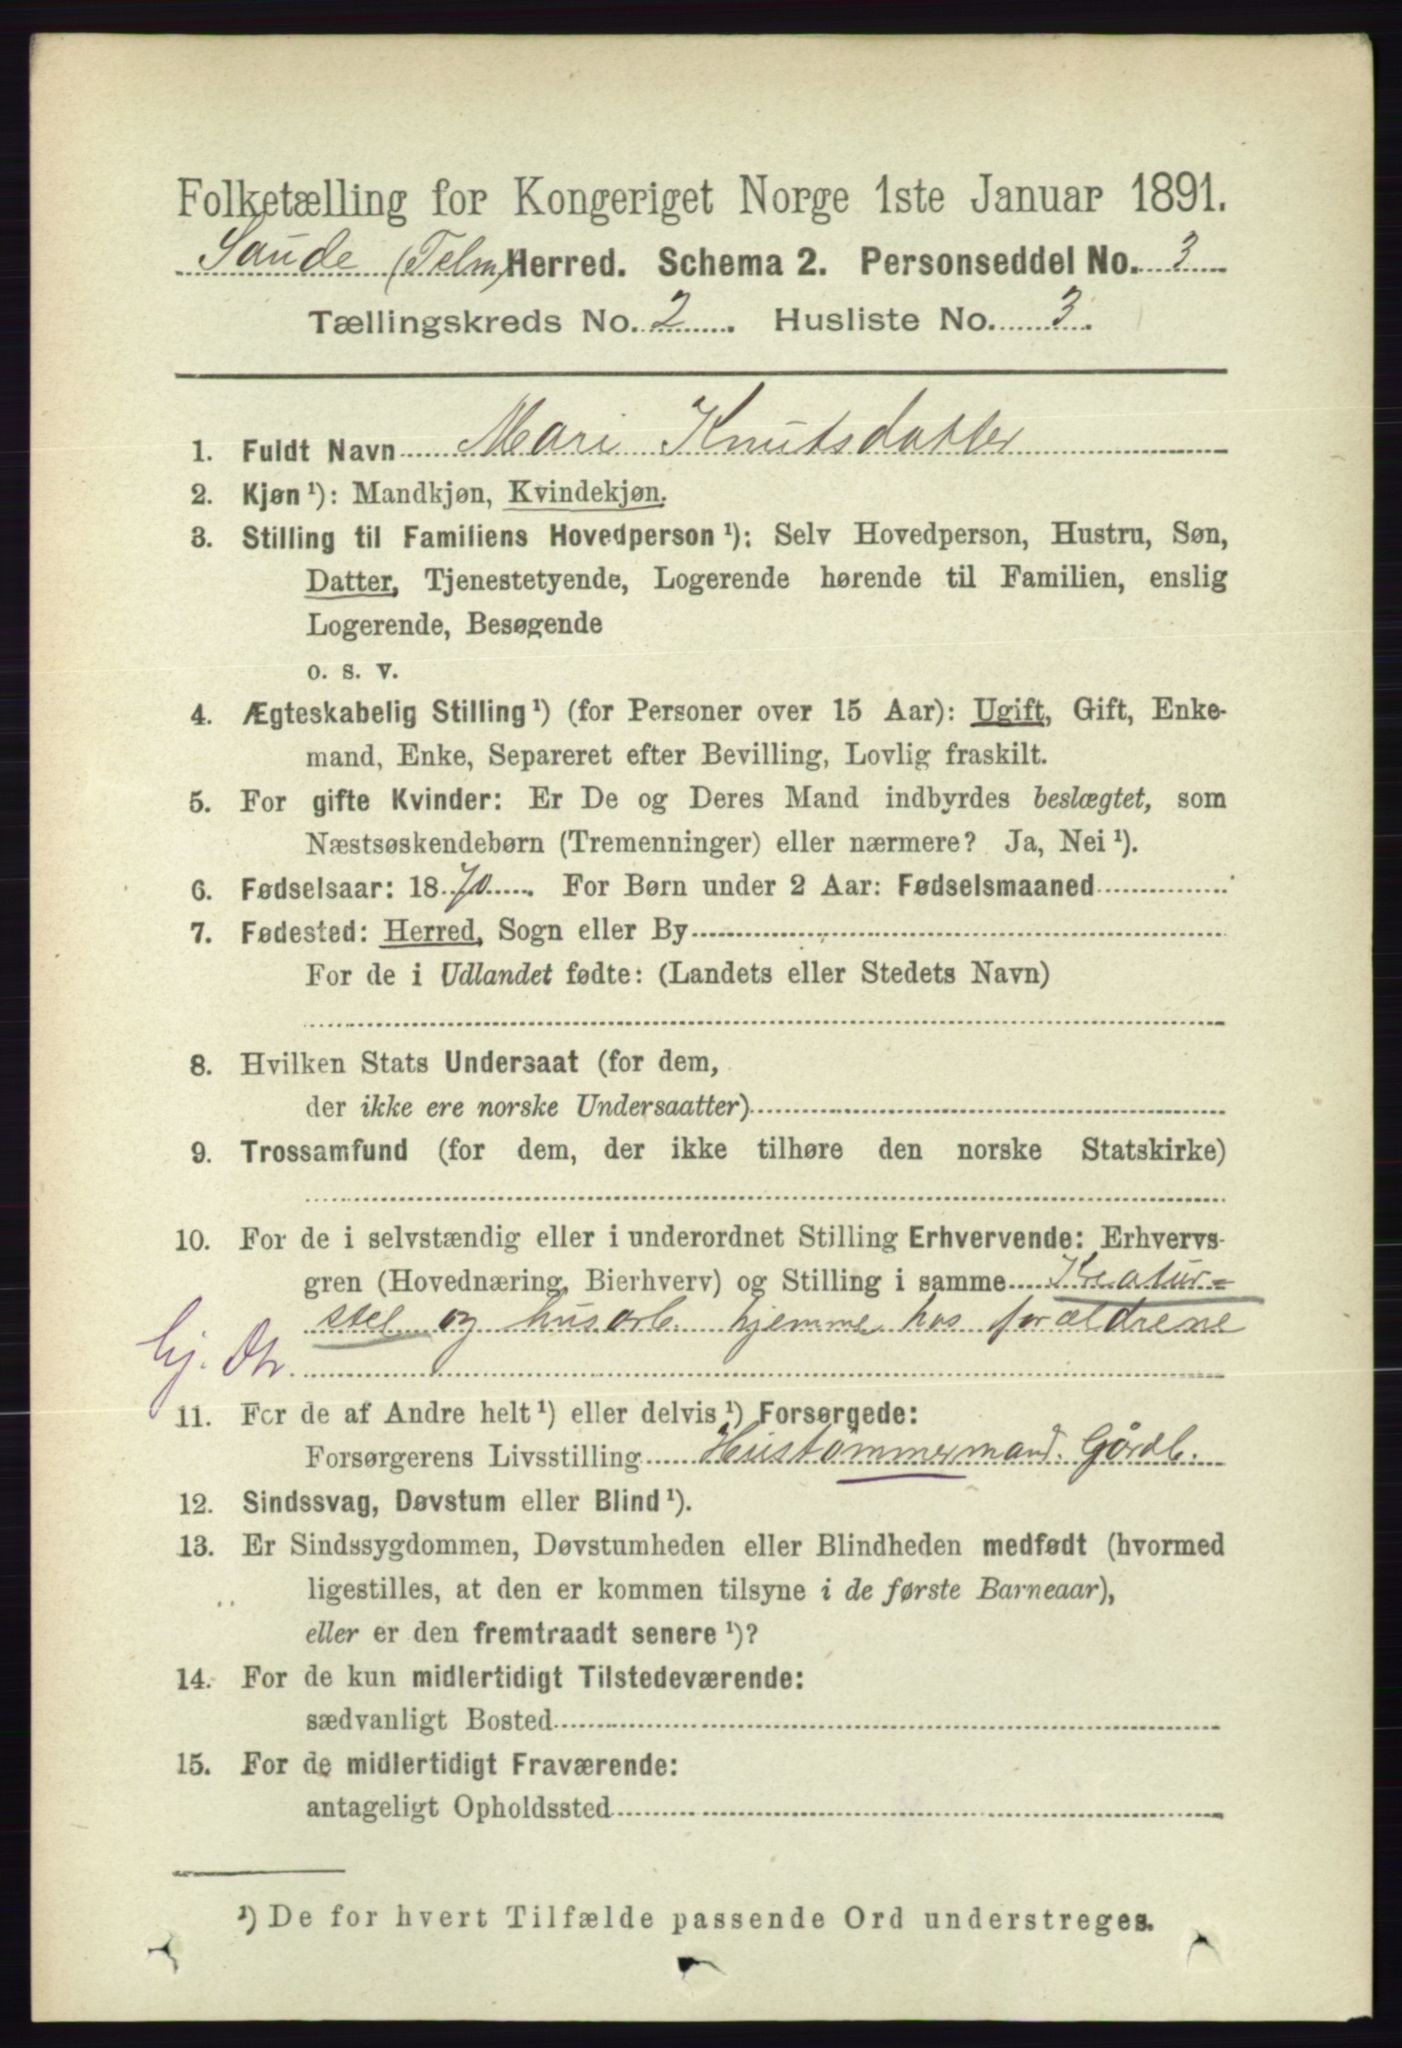 Folketælling for Kongeriget Norge 1ste Januar 1891.
Saude (Telm. Herred. Schema 2. Personseddel No. 3
Tællingskreds No. 2 . Husliste No. 3.
1. Fuldt Navn Mari Knutsdatter
2. Kjøn ¹): Mandkjøn, Kvindekjøn.
3. Stilling til Familiens Hovedperson ¹): Selv Hovedperson, Hustru, Søn,
Datter, Tjenestetyende, Logerende hørende til Familien, enslig
Logerende, Besøgende
o. s. v.
4. Ægteskabelig Stilling ¹) (for Personer over 15 Aar): Ugift, Gift, Enke-
mand, Enke, Separeret efter Bevilling, Lovlig fraskilt.
5. For gifte Kvinder: Er De og Deres Mand indbyrdes beslægtet, som
Næstsøskendebørn (Tremenninger) eller nærmere? Ja, Nei ¹).
6. Fødselsaar: 1870 . For Børn under 2 Aar: Fødselsmaaned
7. Fødested: Herred, Sogn eller By
For de i Udlandet fødte: (Landets eller Stedets Navn)
8. Hvilken Stats Undersaat (for dem,
der ikke ere norske Undersaatter)
9. Trossamfund (for dem, der ikke tilhøre den norske Statskirke)
10. For de i selvstændig eller i underordnet Stilling Erhvervende: Erhvervs-
gren (Hovednæring, Bierhverv) og Stilling i samme Kreatur=
stel og husarb. hjemme hos forældrene
hj. Dtr.
11. For de af Andre helt ¹) eller delvis ¹) Forsørgede:
Forsørgerens Livsstilling Hustømmermand. Gårdb.
12. Sindssvag, Døvstum eller Blind ¹).
13. Er Sindssygdommen, Døvstumheden eller Blindheden medfødt (hvormed
ligestilles, at den er kommen tilsyne i de første Barneaar),
eller er den fremtraadt senere ¹)?
14. For de kun midlertidigt Tilstedeværende:
sædvanligt Bosted
15. For de midlertidigt Fraværende:
antageligt Opholdssted
¹) De for hvert Tilfælde passende Ord understreges.